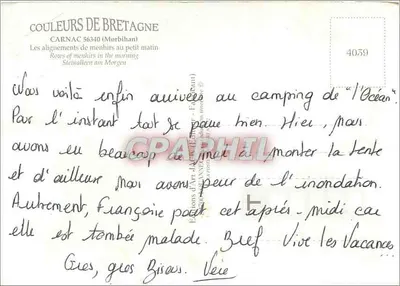 COULEURS DE BRETAGNE
CARNAC 56340 (Morbihan)
Les alignements de menhirs au petit matin
Rows of menhirs in the morning
Steinalleen am Morgen
4059
Nous voilà enfin arrivées au camping de "l'Océan".
Pour l'instant tout se passe bien. Hier, nous
avons eu beaucoup de mal à monter la tente
et d'ailleurs nous avons peur de l'inondation.
Autrement, Françoise part cet après-midi car
elle est tombée malade. Bref Vive les Vacances...
Gros, gros Bisous.
CPAPHIL.com